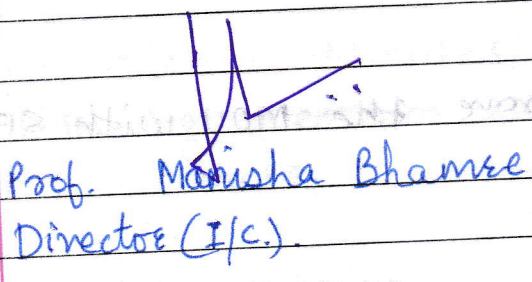 Prof. Manisha Bhamre
Director (I/C.).